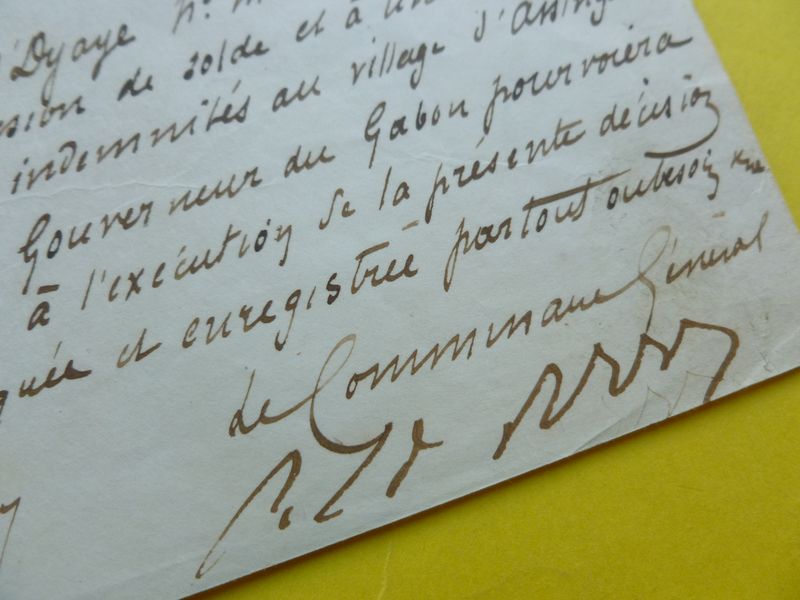 Dyaye n°
sion de solde et à un
indemnités au village d'Assing
Gouverneur du Gabon pourvoiera
à l'exécution de la présente décision
quée et enregistrée partout où besoin
Le Commissaire Général